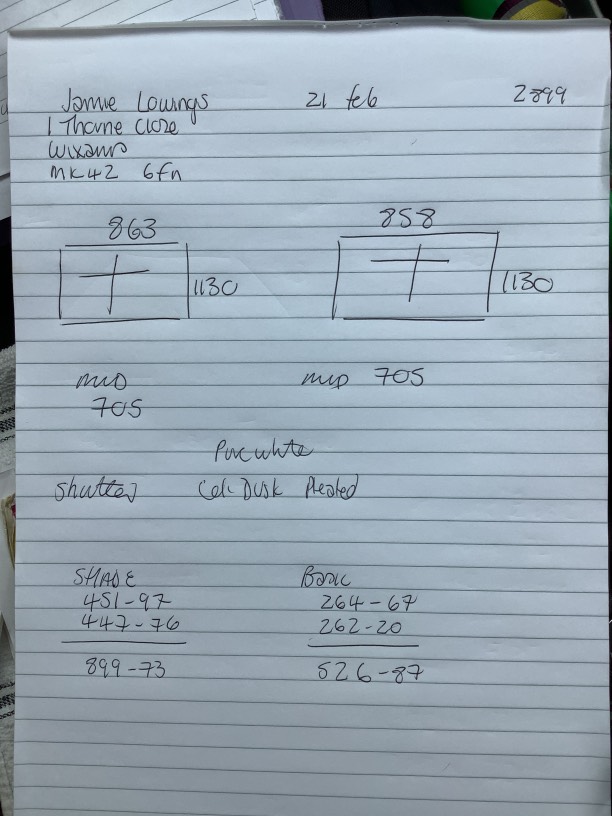 Jamie Lowings 21 feb 2899
1 Thorne Close
Wixams
MK42 6fn
863 858
1130 1130
MID MID 705
705
Pure white
Shutter Col: Dusk Pleated
SHADE Basic
451-97 264-67
447-76 262-20
899-73 526-87